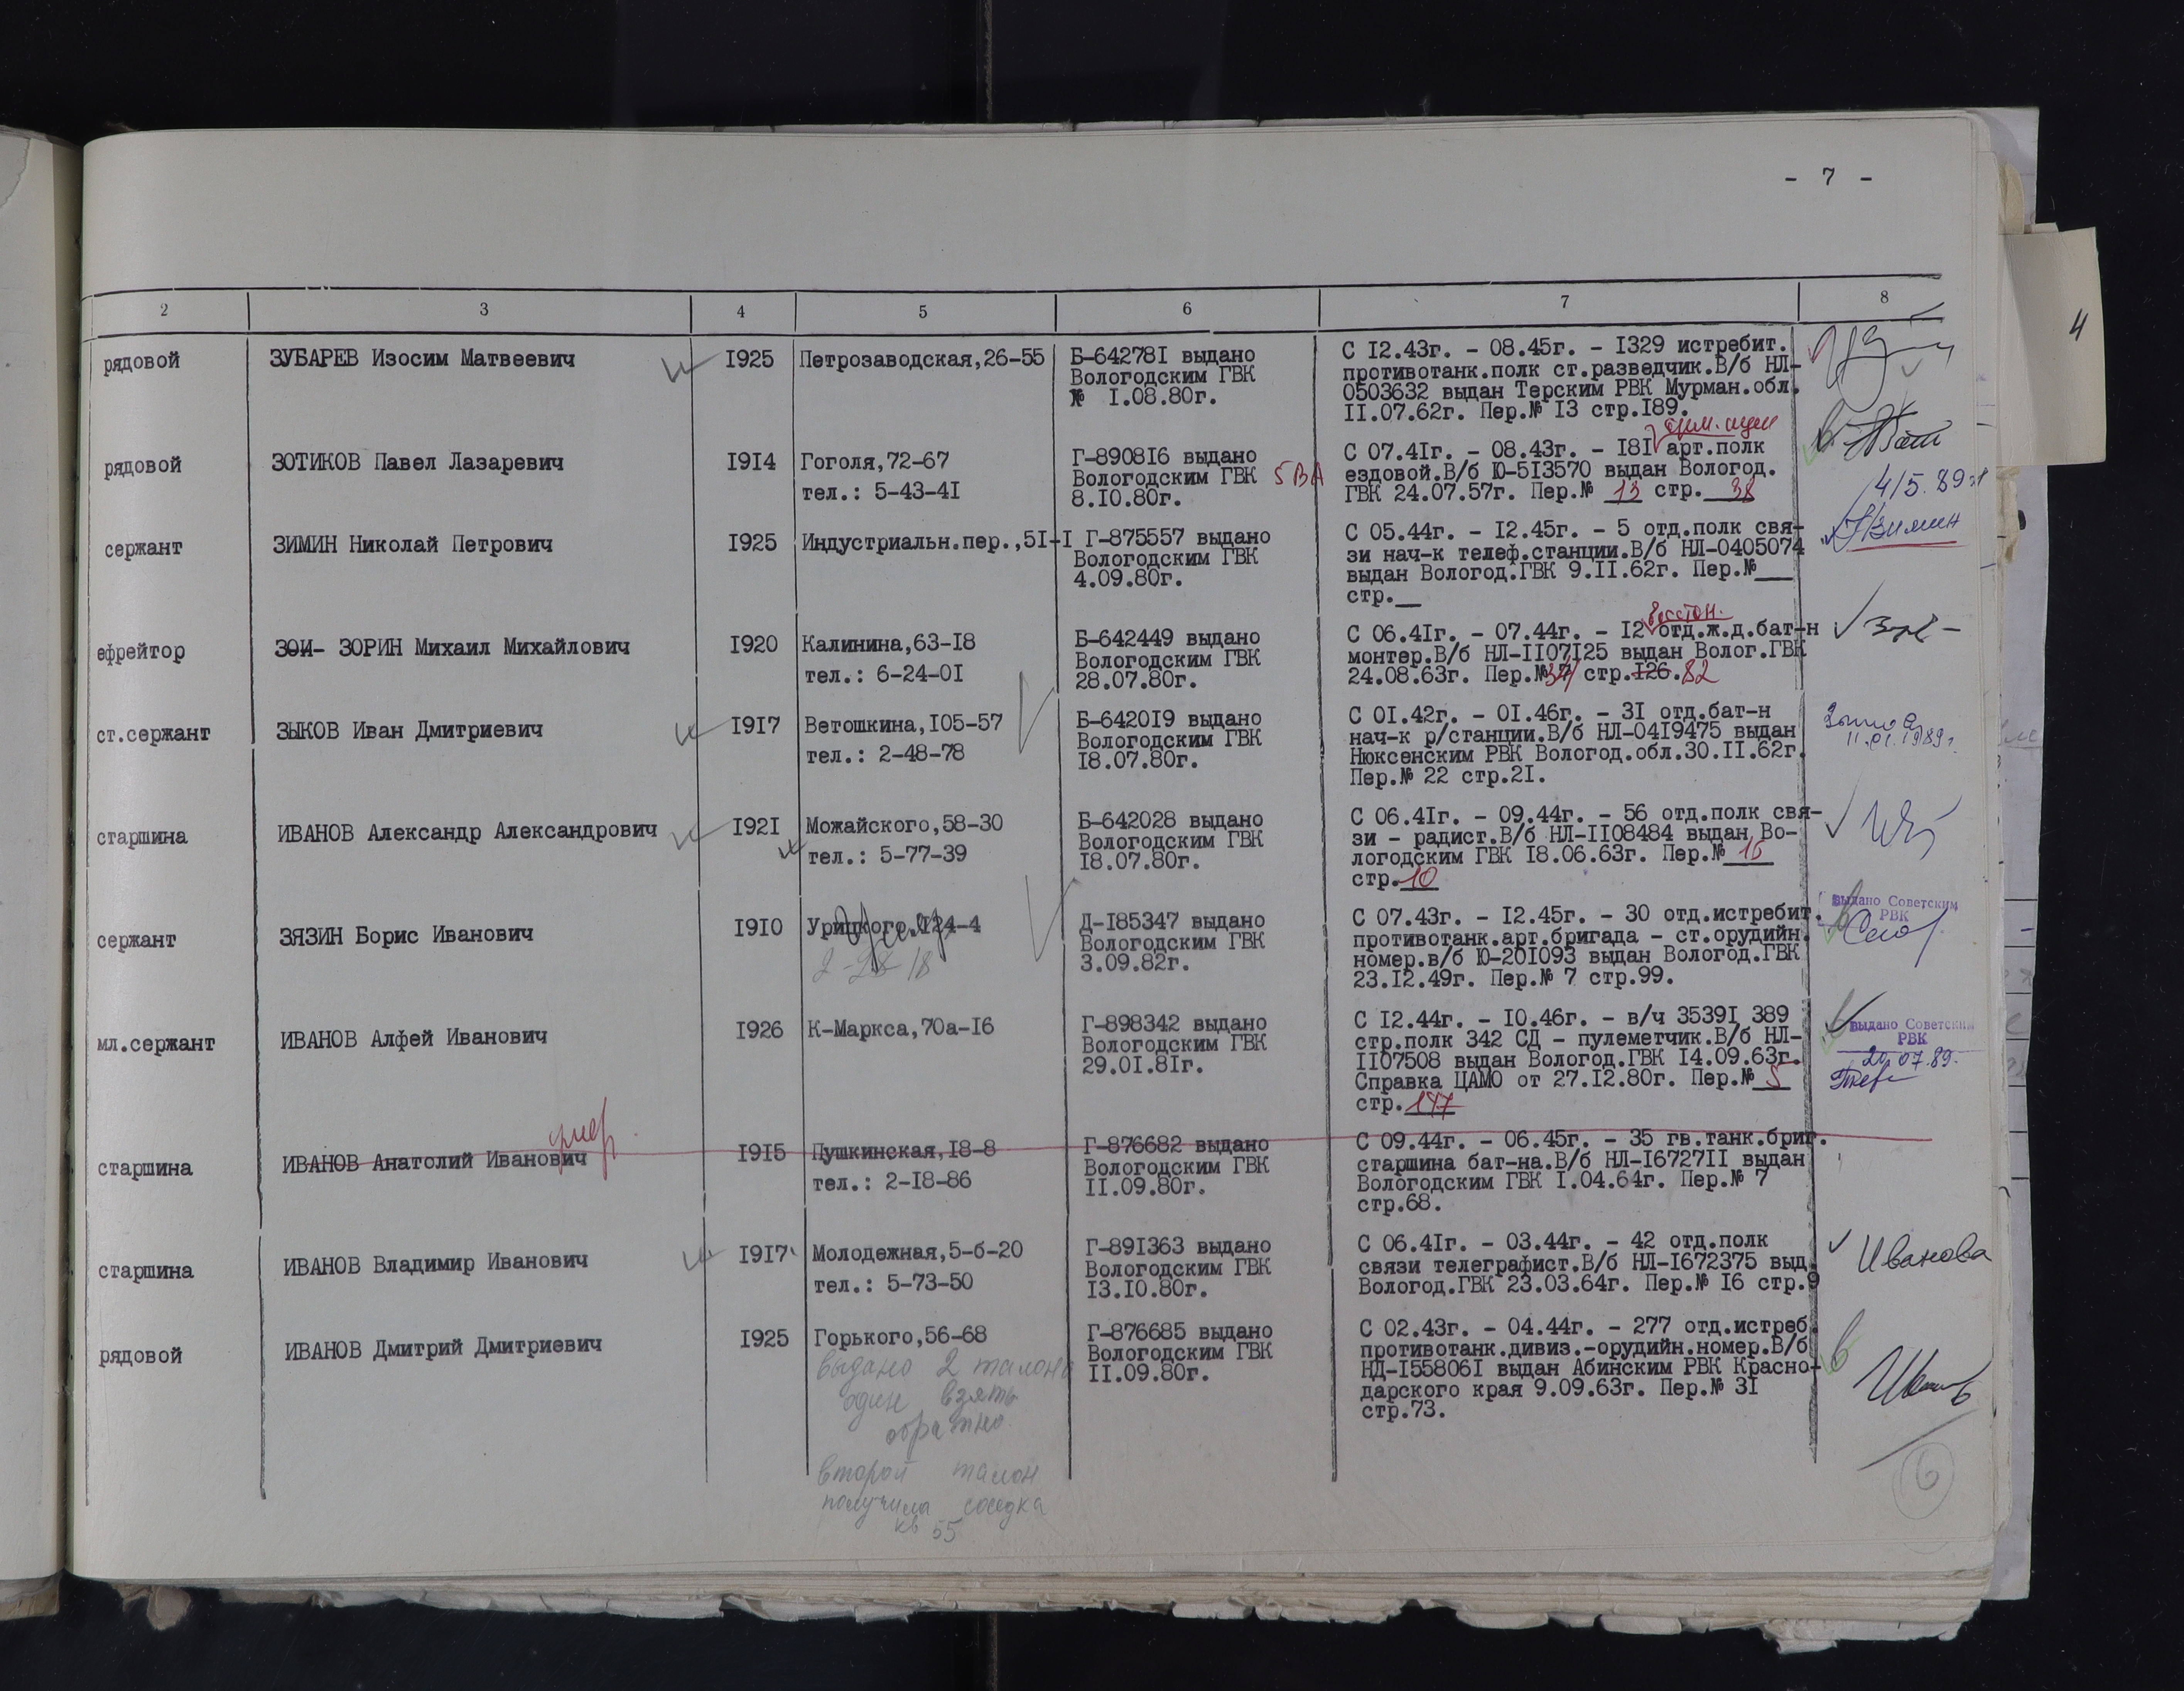 - 7 -
2 3 4 5 6 7 8
рядовой ЗУБАРЕВ Изосим Матвеевич 1925 Петрозаводская,26-55 Б-642781 выдано С 12.43г. - 08.45г. - 1329 истребит.
Вологодским ГВК противотанк.полк ст.разведчик.В/б НЛ-
№ 1.08.80г. 0503632 выдан Терским РВК Мурман.обл.
11.07.62г. Пер.№ 13 стр.189.
рядовой ЗОТИКОВ Павел Лазаревич 1914 Гоголя,72-67 Г-890816 выдано С 07.41г. - 08.43г. - 181 арт.полк
Вологодским ГВК 5 ВА ездовой.В/б Ю-513570 выдан Вологод.
тел.: 5-43-41 8.10.80г. ГВК 24.07.57г. Пер.№ 13 стр. 38
4/5.89г
сержант ЗИМИН Николай Петрович 1925 Индустриальн.пер.,51-1 Г-875557 выдано С 05.44г. - 12.45г. - 5 отд.полк свя- Зимин
Вологодским ГВК зи нач-к телеф.станции.В/б НЛ-0405074
4.09.80г. выдан Вологод.ГВК 9.11.62г. Пер.№___
стр.__
ефрейтор ЗОИ- ЗОРИН Михаил Михайлович 1920 Калинина,63-18 Б-642449 выдано С 06.41г. - 07.44г. - 12 отд.ж.д.бат-н
Вологодским ГВК монтер.В/б НЛ-1107125 выдан Волог.ГВК
тел.: 6-24-01 28.07.80г. 24.08.63г. Пер.№ 34 стр.126. 82
ст.сержант ЗЫКОВ Иван Дмитриевич 1917 Ветошкина,105-57 Б-642019 выдано С 01.42г. - 01.46г. - 31 отд.бат-н
Вологодским ГВК нач-к р/станции.В/б НЛ-0419475 выдан 11.01.1989г.
тел.: 2-48-78 18.07.80г. Нюксенским РВК Вологод.обл.30.11.62г.
Пер.№ 22 стр.21.
старшина ИВАНОВ Александр Александрович 1921 Можайского,58-30 Б-642028 выдано С 06.41г. - 09.44г. - 56 отд.полк свя-
Вологодским ГВК зи - радист.В/б НЛ-1108484 выдан Во-
тел.: 5-77-39 18.07.80г. логодским ГВК 18.06.63г. Пер.№ 16
стр. 10
сержант ЗЯЗИН Борис Иванович 1910 Урицкого,124-4 Д-185347 выдано С 07.43г. - 12.45г. - 30 отд.истребит. выдано Советским
Вологодским ГВК противотанк.арт.бригада - ст.орудийн. РВК
2-28-18 3.09.82г. номер.в/б Ю-201093 выдан Вологод.ГВК
23.12.49г. Пер.№ 7 стр.99.
мл.сержант ИВАНОВ Алфей Иванович 1926 К-Маркса,70а-16 Г-898342 выдано С 12.44г. - 10.46г. - в/ч 35391 389 выдано Советским
Вологодским ГВК стр.полк 342 СД - пулеметчик.В/б НЛ- РВК
29.01.81г. 1107508 выдан Вологод.ГВК 14.09.63г. 20.07.89.
Справка ЦАМО от 27.12.80г. Пер.№ 5
стр. 147
умер
старшина ИВАНОВ Анатолий Иванович 1915 Пушкинская,18-8 Г-876682 выдано С 09.44г. - 06.45г. - 35 гв.танк.бриг.
Вологодским ГВК старшина бат-на.В/б НЛ-1672711 выдан
тел.: 2-18-86 11.09.80г. Вологодским ГВК 1.04.64г. Пер.№ 7
стр.68.
старшина ИВАНОВ Владимир Иванович 1917 Молодежная,5-б-20 Г-891363 выдано С 06.41г. - 03.44г. - 42 отд.полк Иванова
Вологодским ГВК связи телеграфист.В/б НЛ-1672375 выд.
тел.: 5-73-50 13.10.80г. Вологод.ГВК 23.03.64г. Пер.№ 16 стр.9
рядовой ИВАНОВ Дмитрий Дмитриевич 1925 Горького,56-68 Г-876685 выдано С 02.43г. - 04.44г. - 277 отд.истреб.
Вологодским ГВК противотанк.дивиз.-орудийн.номер.В/б
11.09.80г. НД-1558061 выдан Абинским РВК Красно-
дарского края 9.09.63г. Пер.№ 31
стр.73.
выдано 2 талона
один взять
обратно
второй талон
получила соседка
кв 55
6
4